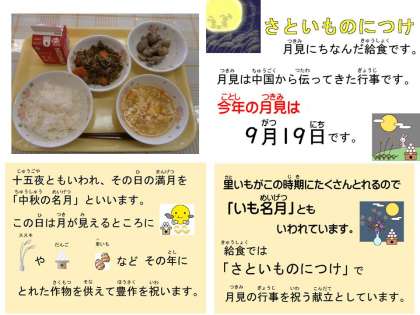 さといものにつけ
月見にちなんだ給食です。
月見は中国から伝ってきた行事です。
今年の月見は
9月19日です。
十五夜ともいわれ、その日の満月を
「中秋の名月」といいます。
この日は月が見えるところに
ススキ だんご 里いも
や など その年に
とれた作物を供えて豊作を祝います。
里いもがこの時期にたくさんとれるので
「いも名月」とも
いわれています。
給食では
「さといものにつけ」で
月見の行事を祝う献立としています。